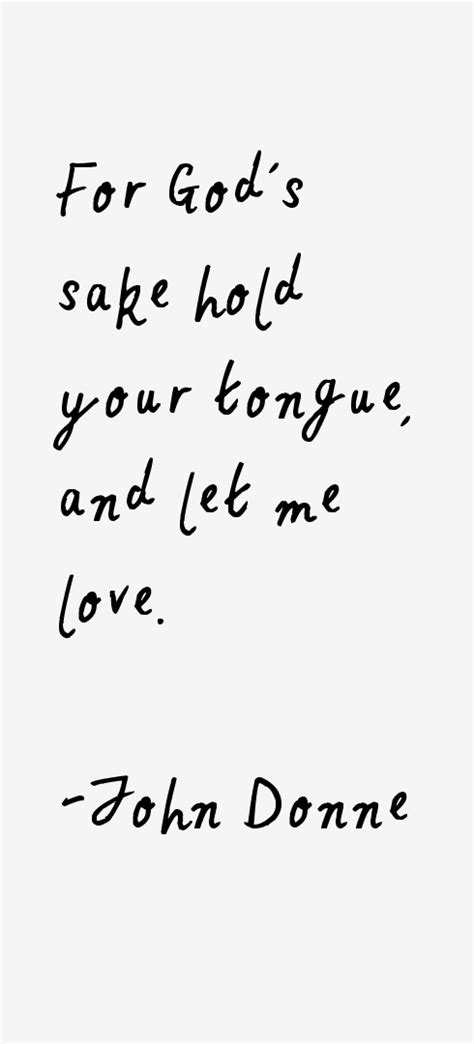 For God's
sake hold
your tongue,
and let me
love.
-John Donne